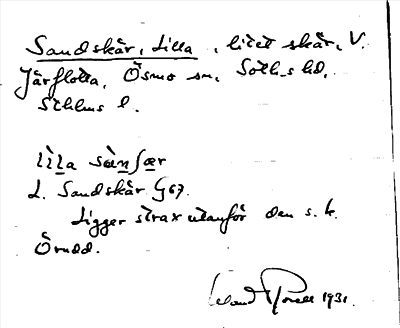 Sandskär, Lilla, litet skär, V.
Järflotta, Ösmo sn, Soth-s hd,
Sthlms l.
lìla sànʃær
L. Sandskär G67.
Ligger strax utanför den s. k.
Örudd.
1931.